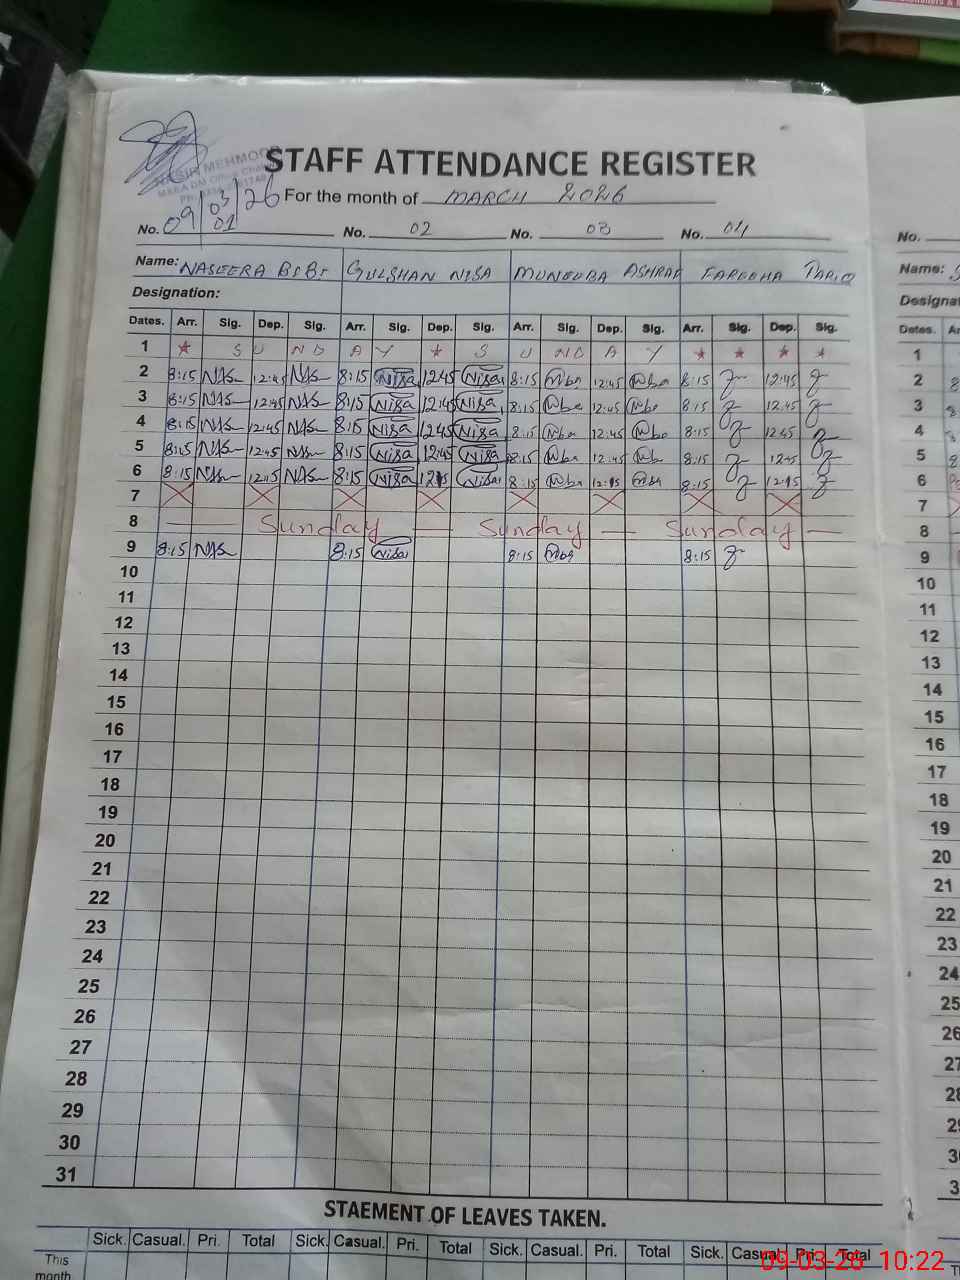 NASIR MEHMOOD
STAFF ATTENDANCE REGISTER
For the month of MARCH 2026
09/03/26
No. 01 No. 02 No. 03 No. 04 No.
Name: NASEERA BiBi GULSHAN NISA MUNEEBA ASHRAF FAREEHA TARIQ Name:
Designation:
Dates. Arr. Sig. Dep. Sig. Arr. Sig. Dep. Sig. Arr. Sig. Dep. Sig. Arr. Sig. Dep. Sig. Dates.
1 * S U N D A Y * S U N D A Y * * * * 1
2 8:15 NAS 12:45 NAS 8:15 Nisa 12:45 Nisa 8:15 Mba 12:45 Mba 8:15 12:45 2
3 8:15 NAS 12:45 NAS 8:15 Nisa 12:45 Nisa 8:15 Mba 12:45 Mba 8:15 12:45 3
4 8:15 NAS 12:45 NAS 8:15 Nisa 12:45 Nisa 8:15 Mba 12:45 Mba 8:15 12:45 4
5 8:15 NAS 12:45 NAS 8:15 Nisa 12:45 Nisa 8:15 Mba 12:45 Mba 8:15 12:45 5
6 8:15 NAS 12:15 NAS 8:15 Nisa Nisa 8:15 Mba 12:15 Mba 8:15 12:15 6
7 X X X X X X X X 7
8 Sunday Sunday Sunday 8
9 8:15 NAS 8:15 Nisa 8:15 Mba 8:15 9
10 10
11 11
12 12
13 13
14 14
15 15
16 16
17 17
18 18
19 19
20 20
21 21
22 22
23 23
24 24
25 25
26 26
27 27
28 28
29
30
31
STAEMENT OF LEAVES TAKEN.
Sick. Casual. Pri. Total Sick. Casual. Pri. Total Sick. Casual. Pri. Total Sick. Casual. Pri. Total
This month
09-03-26 10:22